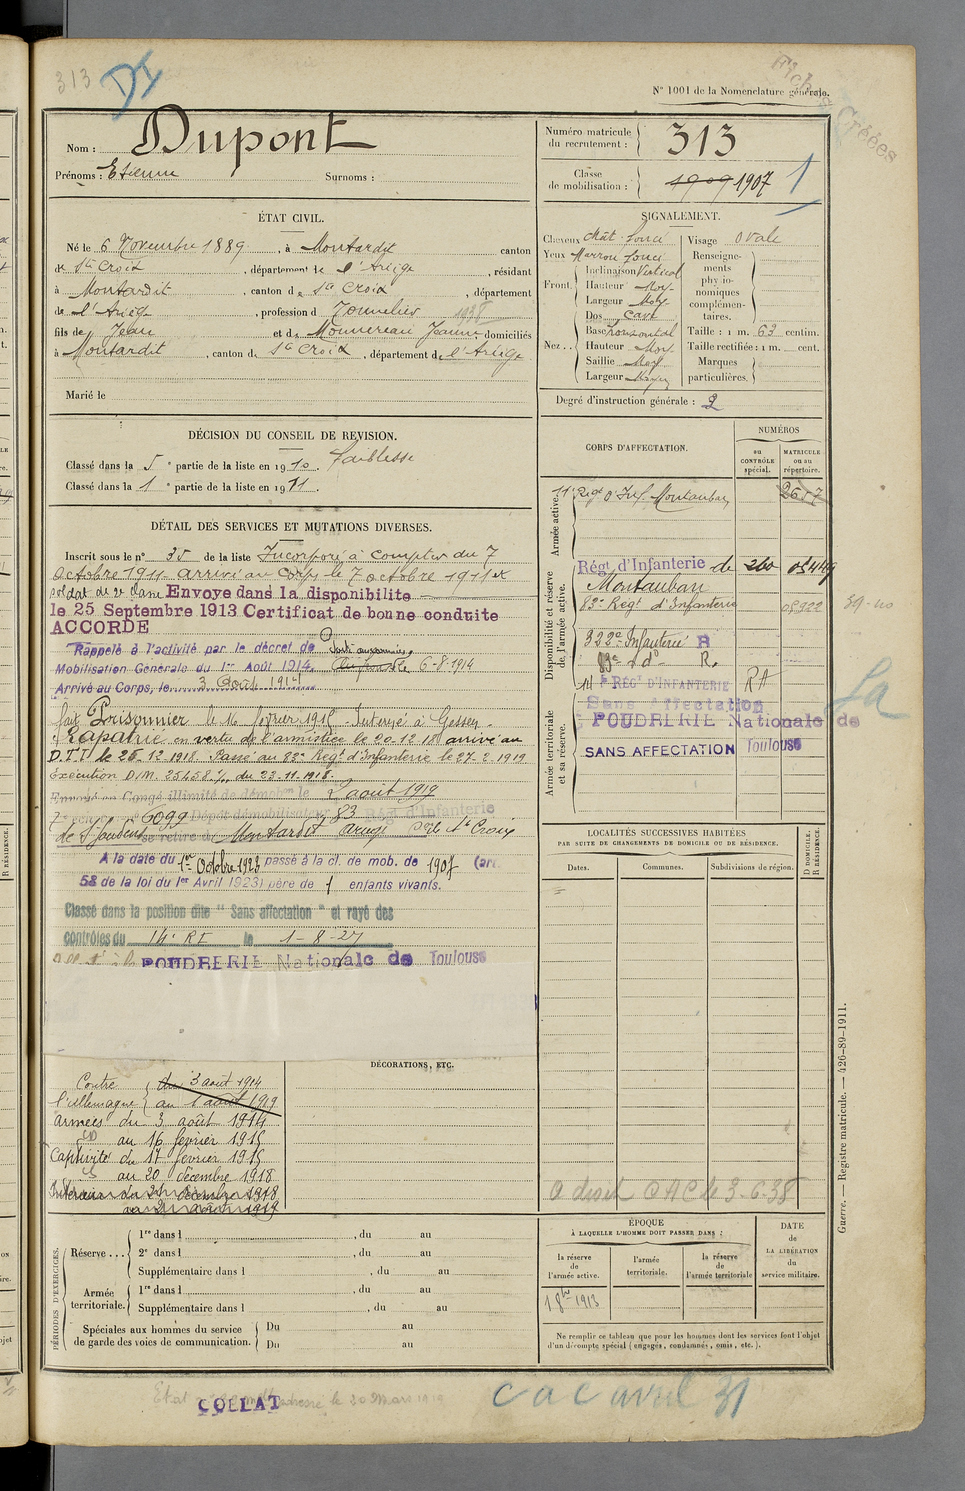 313
N° 1001 de la Nomenclature générale.
Fiches Créées
Nom : Dupont
Prénoms : Etienne Surnoms :
Numéro matricule du recrutement : 313
Classe de mobilisation : 1909 1907
1
ÉTAT CIVIL.
Né le 6 Novembre 1889, à Montardit canton
de Ste Croix, département de l'Ariège, résidant
à Montardit, canton de Ste Croix, département
de l'Ariège, profession d Tonnelier 1938
fils de Jean et de Monnereau Jeanne, domiciliés
à Montardit, canton de Ste Croix, département de l'Ariège
Marié le
SIGNALEMENT.
Cheveux Chât. foncé
Yeux Marron foncé
Front. Inclinaison Vertical
Hauteur Moy.
Largeur Moy.
Nez.. Dos Cave
Base horizontal
Hauteur Moy.
Saillie Moy.
Largeur Moyen
Visage Ovale
Renseignements physionomiques complémentaires.
Taille : 1 m. 63 centim.
Taille rectifiée : 1 m. cent.
Marques particulières.
Degré d'instruction générale : 2
DÉCISION DU CONSEIL DE REVISION.
Classé dans la 5e partie de la liste en 1910. faiblesse
Classé dans la 1 e partie de la liste en 1911.
DÉTAIL DES SERVICES ET MUTATIONS DIVERSES.
Inscrit sous le n° 35 de la liste Incorporé à compter du 7
Octobre 1911 arrivé au Corps le 7 octobre 1911 et
soldat de 2e classe Envoye dans la disponibilite
le 25 Septembre 1913 Certificat de bonne conduite
ACCORDE
Rappelé à l'activité par le décret de
Mobilisation Générale du 1er Août 1914. 6-8-1914
Arrivé au Corps, le 3 Août 1914
fait Prisonnier le 16 février 1915 Interné à Giessen
Rapatrié en vertu de l'armistice le 20.12.18 arrivé au
D.T.I. le 26.12.1918. Passé au 83e Regt d'Infanterie le 27-2.1919
exécution D.M. 25458 % du 23.11.1918.
Envoyé en Congé illimité de démobon le 2 aout 1919
6099 Dépôt démobilisateur 83 Rég. d'Infanterie
de St Gaudens se retire à Montardit Ariège Cton de Ste Croix
A la date du 1er Octobre 1923 passé à la cl. de mob. de 1907 (art.
58 de la loi du 1er Avril 1923) père de 1 enfants vivants.
Classé dans la position dite " Sans affectation " et rayé des
contrôles du 14e RI le 1-8-27
POUDRERIE Nationale de Toulouse
CORPS D'AFFECTATION.
NUMÉROS
au CONTRÔLE spécial.
MATRICULE ou au répertoire.
Armée active.
11e Regt d'Inf. Montauban 2657
Disponibilité et réserve de l'armée active.
Régt d'Infanterie de 260 05449
Montauban
83e Regt d'Infanterie 05922
322e Infanterie R
83e d° R.
14e RÉGT D'INFANTERIE RA
Armée territoriale et sa réserve.
Sans Affectation
POUDRERIE Nationale de Toulouse
SANS AFFECTATION
LOCALITÉS SUCCESSIVES HABITÉES
PAR SUITE DE CHANGEMENTS DE DOMICILE OU DE RÉSIDENCE.
Dates. Communes. Subdivisions de région. D DOMICILE. R RÉSIDENCE.
Contre l'Allemagne
du 3 août 1914
au 1 août 1919
armées du 3 août 1914
au 16 février 1915
Captivité du 17 février 1915
au 20 décembre 1918
Intérieur du 21 décembre 1918
au 2 août 1919
DÉCORATIONS, ETC.
CAC le 3-6-38
PÉRIODES D'EXERCICES.
Réserve ... 1re dans l , du au
2e dans l , du au
Supplémentaire dans l , du au
Armée territoriale. 1re dans l , du au
Supplémentaire dans l , du au
Spéciales aux hommes du service de garde des voies de communication. Du au
Du au
ÉPOQUE
À LAQUELLE L'HOMME DOIT PASSER DANS :
la réserve de l'armée active.
l'armée territoriale.
la réserve de l'armée territoriale
DATE de LA LIBÉRATION du service militaire.
1 8bre 1913
Ne remplir ce tableau que pour les hommes dont les services font l'objet
d'un décompte spécial (engagés, condamnés, omis, etc.).
Guerre. — Registre matricule. — 426-89-1911.
COLLAT
cac avril 31